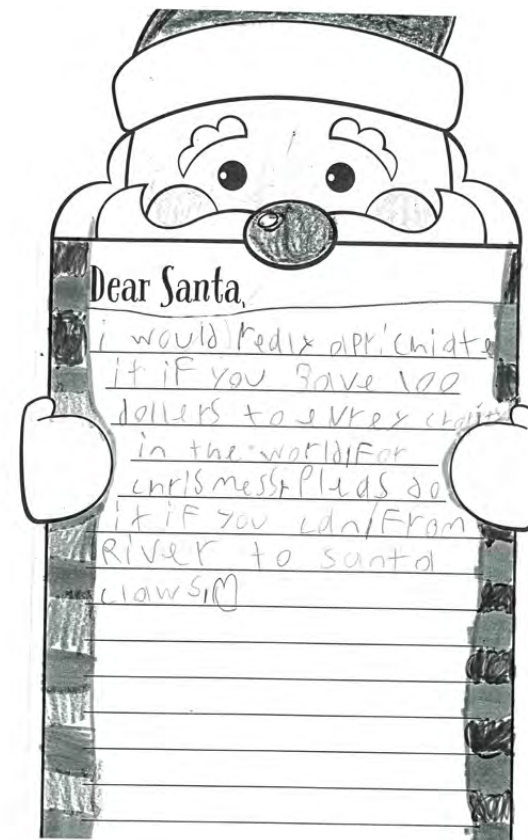 Dear Santa,
i would realy apprichiate
it iF you gave 100
dollers to evrey charity
in the world/For
chrismess, Pleas do
it iF you can/From
River to santa
claws,♡